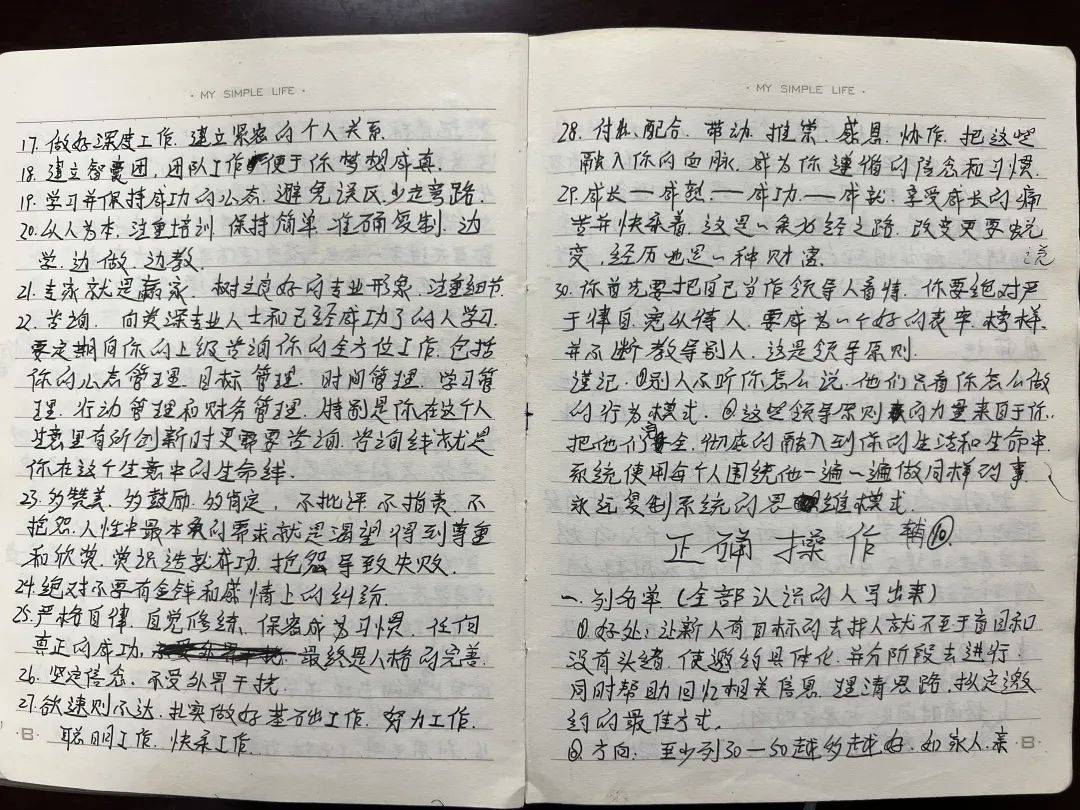 · MY SIMPLE LIFE ·
17. 做好深度工作. 建立紧密的个人关系.
18. 建立智囊团, 团队工作便于你梦想成真.
19. 学习并保持成功的心态. 避免误区. 少走弯路.
20. 以人为本. 注重培训 保持简单 准确复制. 边
学. 边做 边教.
21. 专家就是赢家. 树立良好的专业形象. 注重细节.
22. 咨询. 向资深专业人士和已经成功了的人学习.
要定期向你的上级咨询你的全方位工作. 包括
你的心态管理. 目标管理. 时间管理. 学习管
理. 行动管理和财务管理. 特别是你在这个人
生意里有所创新时更需要咨询. 咨询线就是
你在这个生意中的生命线.
23. 多赞美. 多鼓励. 多肯定, 不批评. 不指责. 不
抱怨. 人性中最本质的需求就是渴望得到尊重
和欣赏. 赏识造就成功. 抱怨导致失败.
24. 绝对不要有金钱和感情上的纠纷.
25. 严格自律. 自觉修练. 保密成为习惯. 任何
真正的成功, 最终是人格的完善.
26. 坚定信念. 不受外界干扰.
27. 欲速则不达. 扎实做好基础工作. 努力工作.
聪明工作. 快乐工作.
B
· MY SIMPLE LIFE ·
28. 付出、配合. 带动. 推崇. 感恩. 协作. 把这些
融入你的血脉, 成为你遵循的信念和习惯.
29. 成长——成熟——成功——成就. 享受成长的痛
苦并快乐着. 这是一条必经之路. 改变更要蜕
变, 经历也是一种财富.
30. 你首先要把自己当作领导人看待. 你要绝对严
于律自. 宽以待人. 要成为一个好的表率. 榜样.
并不断教导别人. 这是领导原则.
谨记. ①别人不听你怎么说. 他们只看你怎么做
的行为模式. ②这些领导原则的力量来自于你.
把他们完全. 彻底的融入到你的生活和生命中.
系统使用每个人围绕他一遍一遍做同样的事.
永远复制系统的思维模式.
正确操作 辅⑩.
一. 列名单 (全部认识的人写出来)
①. 好处: 让新人有目标的去排人就不至于盲目和
没有头绪. 使邀约具体化. 并分阶段去进行.
同时帮助回归相关信息. 理清思路. 拟定邀
约的最佳方式.
②. 方向: 至少列30—50越多越好. 如家人. 亲
B